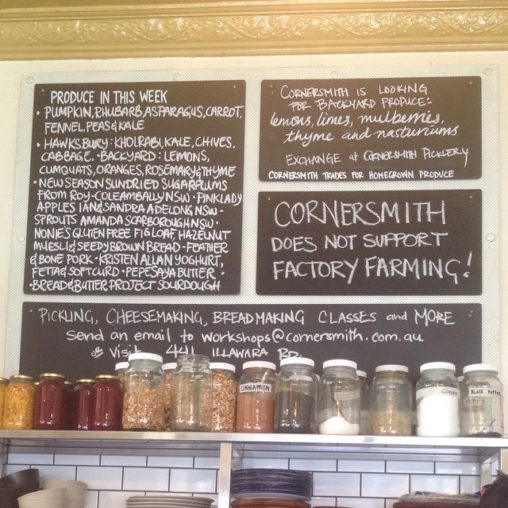 PRODUCE IN THIS WEEK
• PUMPKIN, RHUBARB, ASPARAGUS, CARROT,
FENNEL, PEAS & KALE
• HAWKSBURY: KHOLRABI, KALE, CHIVES,
CABBAGE. • BACKYARD: LEMONS,
CUMQUATS, ORANGES, ROSEMARY & THYME
• NEW SEASON SUNDRIED SUGARPLUMS
FROM ROY - COLEAMBALLY NSW • PINKLADY
APPLES IAN & SANDRA ADELONG NSW •
SPROUTS AMANDA SCARBOROUGH NSW •
NONIES GLUTEN FREE FIG LOAF, HAZELNUT
MUESLI & SEEDY BROWN BREAD • FEATHER
& BONE PORK • KRISTEN ALLAN YOGHURT,
FETTA & SOFT CURD • PEPE SAYA BUTTER •
• BREAD & BUTTER PROJECT SOURDOUGH
CORNERSMITH IS LOOKING
FOR BACKYARD PRODUCE:
lemons, limes, mulberries,
thyme and nasturiums
EXCHANGE at CORNERSMITH PICKLERY
CORNERSMITH TRADES FOR HOMEGROWN PRODUCE
CORNERSMITH
DOES NOT SUPPORT
FACTORY FARMING!
PICKLING, CHEESEMAKING, BREADMAKING CLASSES and MORE
Send an email to workshops@cornersmith.com.au
or Visit 441 ILLAWARA RD
CINNAMON
BLACK PEPPER